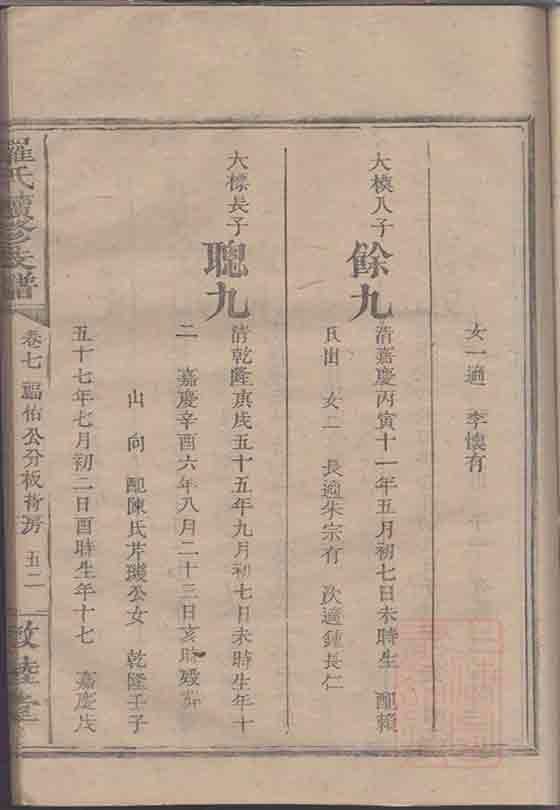 女一適 李懷有
大模八子
餘九
清嘉慶丙寅十一年五月初七日未時生 配賴
氏出 女二 長適朱宗有 次適鍾長仁
大標長子
聰九
清乾隆庚戌五十五年九月初七日未時生年十
二 嘉慶辛酉六年八月二十三日亥時歿葬
山 向 配陳氏芹璣公女 乾隆壬子
五十七年七月初二日酉時生年十七 嘉慶戊
羅氏續修支譜
卷七 福佑公分板街房 五二
敦睦堂